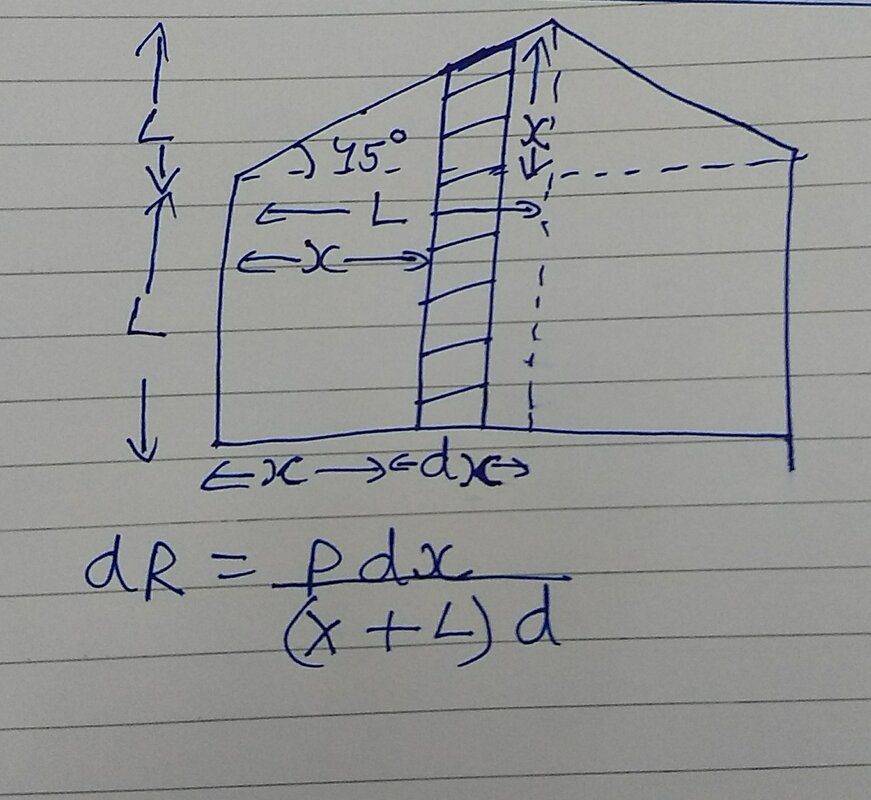 L
45°
x
L
x
L
x dx
dR = ρ dx
(x + L) d